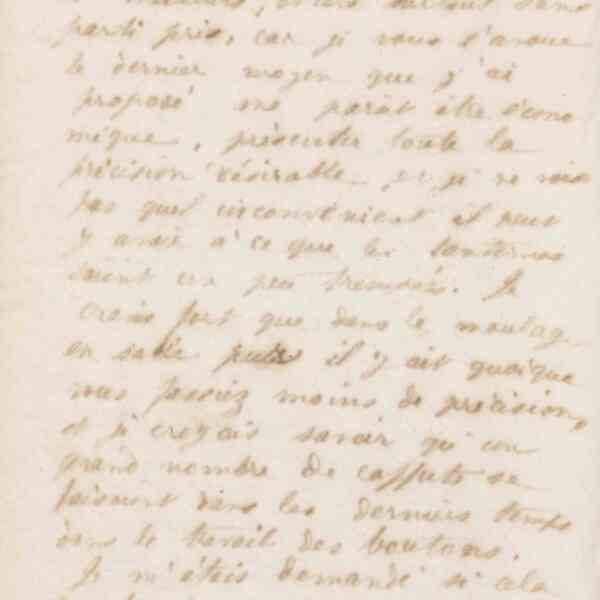 parti pris, car je vous l'avoue
le dernier moyen que j'ai
proposé me parait être écono
mique, présenter toute la
précision désirable, et je ne vois
pas quel inconvénient il peut
y avoir a' ce que les lanternes
soient un peu trempés. Je
crains fort que dans le moulag
en sable il y ait quoique
vous fassiez moins de précision,
et je croyais savoir qu'un
grand nombre de cassuts se
faisaient dans les derniers temps
dans le travail des boutons.
Je m'étais demandé si cela